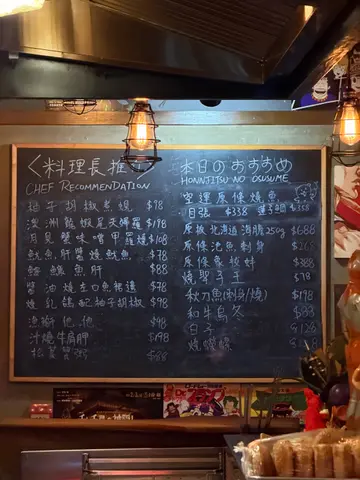 料理長推
CHEF RECOMMENDATION
柚子胡椒煮蜆 $78
澳洲龍蝦尾天婦羅 $198
月見蟹味噌甲羅燒 $108
魷魚肝醬燒魷魚 $78
鮟鱇魚肝 $88
醬油燒左口魚裙邊 $78
燒乳鴿配柚子胡椒 $98
$98
汁燒牛肩胛 $198
$88
本日のおすすめ
HONNJITSU NO OSUSUME
空運原條燒魚
目張 $338
原板北海道海膽250g $688
原條池魚刺身 $268
原條魚 $388
燒翠子王 $78
秋刀魚(刺身/燒) $198
和牛自冬 $88
白子 $128
燒